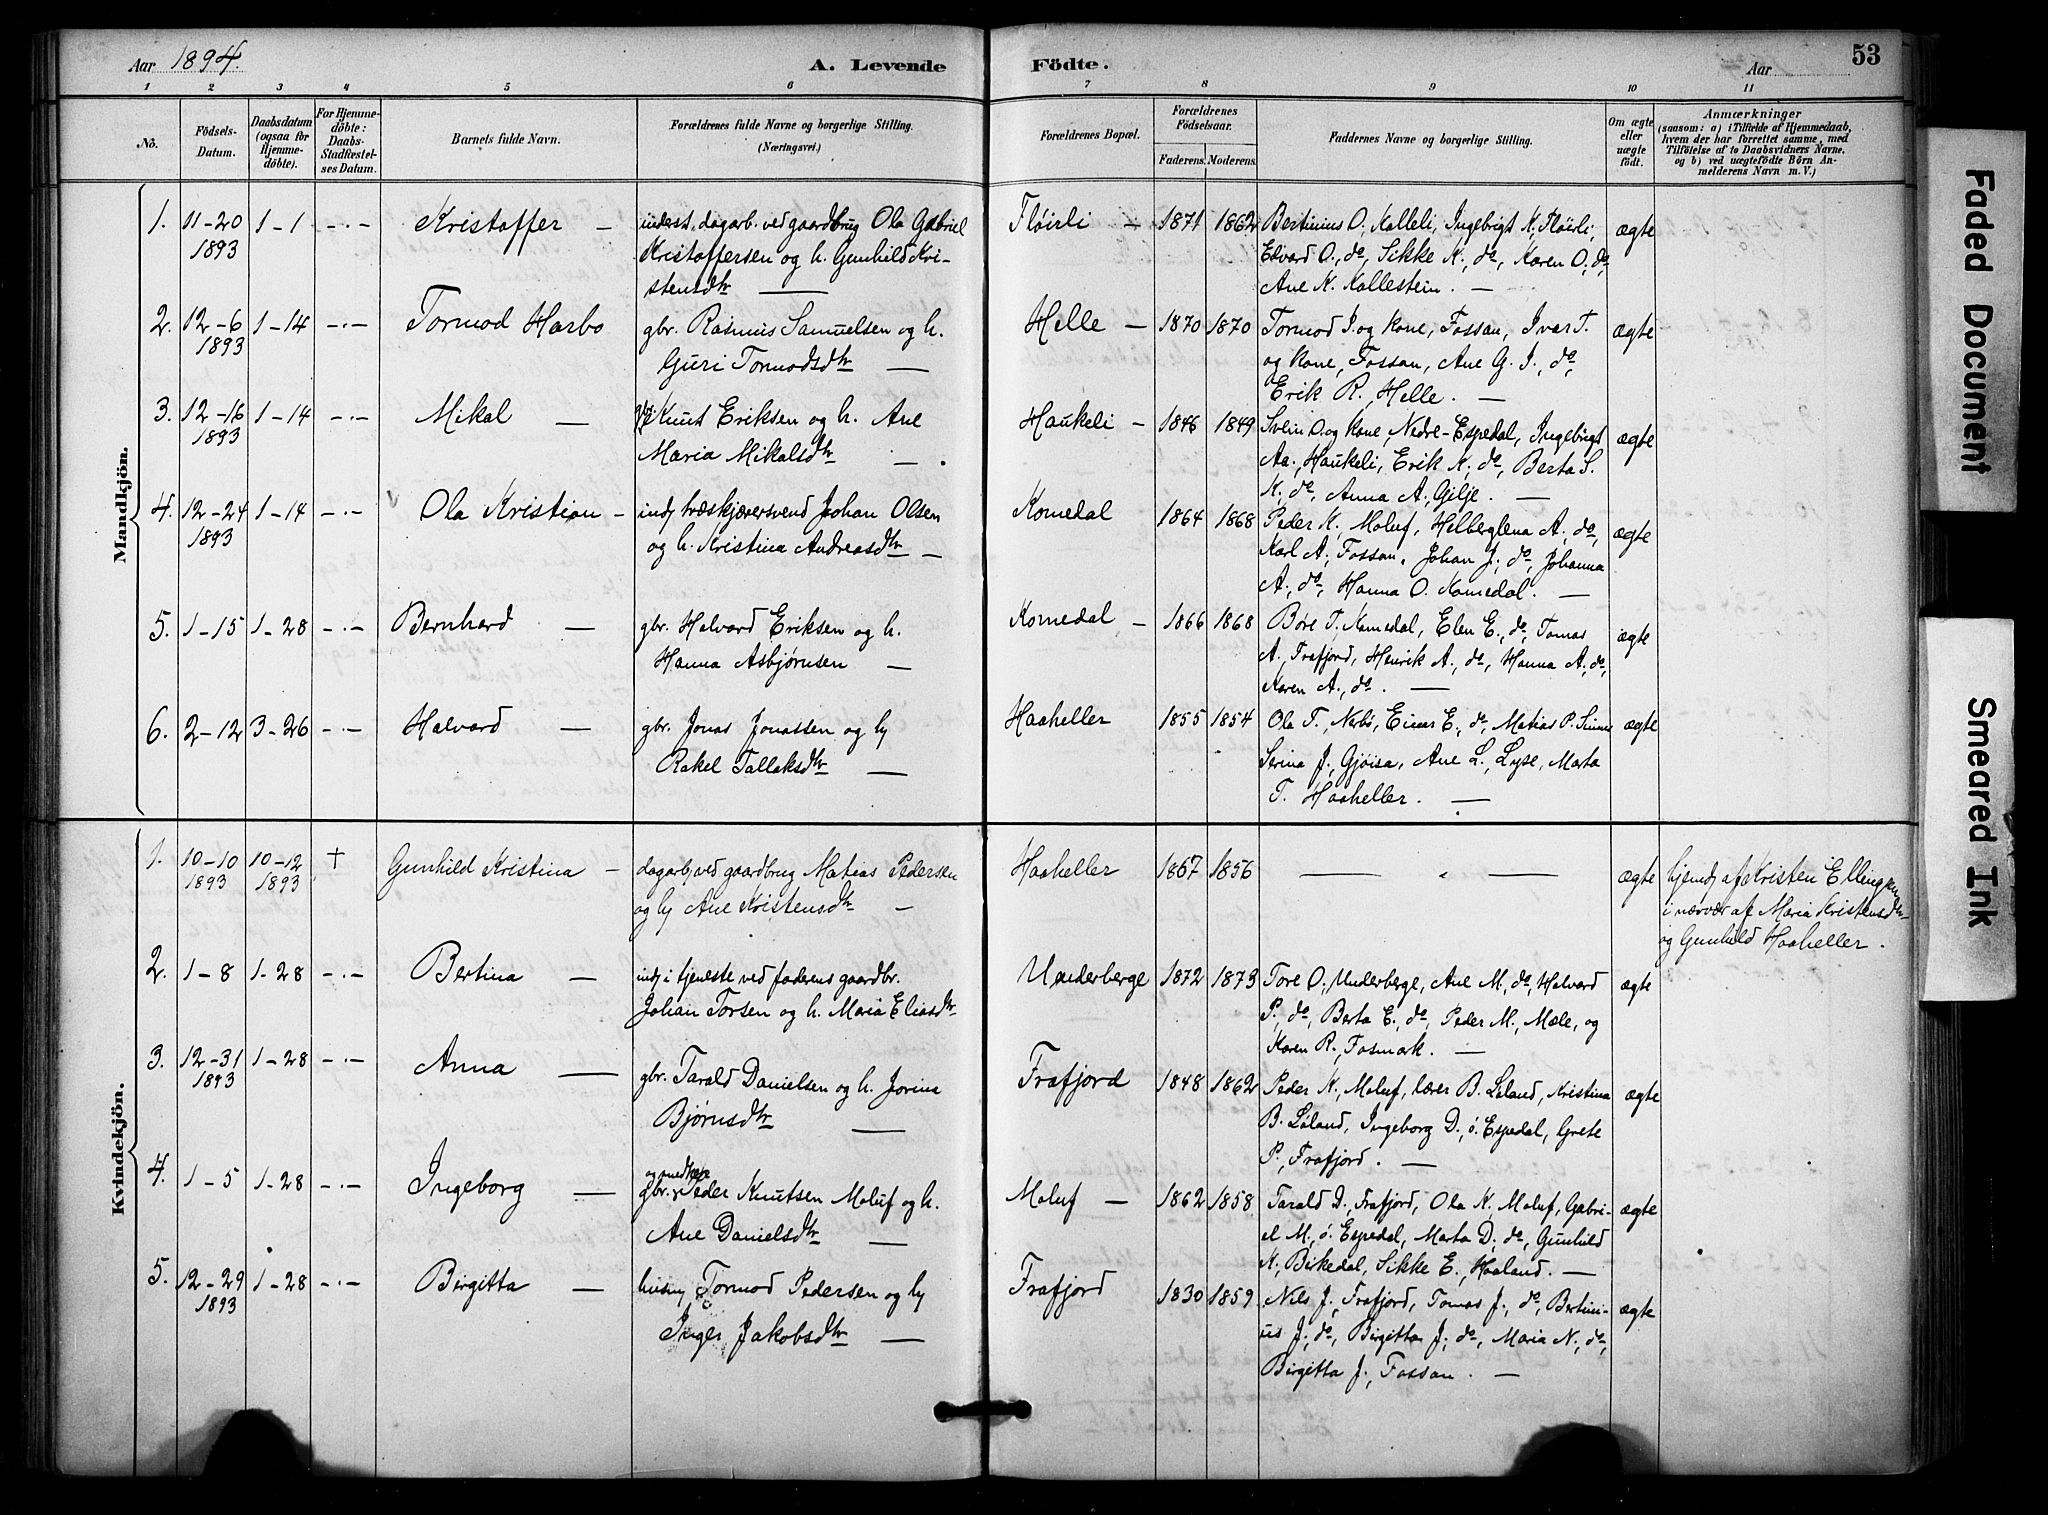 Aar 1894.
A. Levende Födte.
Aar
53
1 2 3 4 5 6 7 8 9 10 11
No.
Födsels-Datum.
Daabsdatum (ogsaa for Hjemme-döbte).
For Hjemme-döbte: Daabs-Stadfæstel-ses Datum.
Barnets fulde Navn.
Forældrenes fulde Navne og borgerlige Stilling.
(Næringsvei.)
Forældrenes Bopæl.
Forældrenes Födselsaar.
Faderens. Moderens.
Faddernes Navne og borgerlige Stilling.
Om ægte eller uægte födt.
Anmærkninger
(saasom: a) i Tilfælde af Hjemmedaab,
hvem der har forrettet samme, med
Tilföielse af to Daabsvidners Navne,
og b) ved uægtefödte Börn An-
melderens Navn m. V.)
Mandkjön.
1. 11-20 1893 1-1 -·- Kristoffer — inderst, dagarb. ved gaardbrug Ola Gabriel
Kristoffersen og h. Gunhild Kri-
stensdtr —
Fløirli - 1871 1862 Bertinius O. Kalleli, Ingebrigt K., Fløirli,
Edvard O., do, Sikke K., do, Karen O., do,
Ane K. Kallestein. —
ægte
2. 12-6 1893 1-14 -·- Tormod Harbo gbr. Rasmus Samuelsen og h.
Guri Tormodsdtr —
Helle - 1870 1870 Tormod I. og kone, Fossan, Ivar T.
og kone, Fossan, Ane G. I., do,
Erik R., Helle. —
ægte
3. 12-16 1893 1-14 -·- Mikal — gbr. Knut Eriksen og h. Ane
Maria Mikalsdtr —
Haukeli - 1846 1849 Svein O. og kone, Nedre-Espedal, Ingebrigt
Aa., Haukeli, Erik K., do, Berta S.
K., do, Anna A., Gilje. —
ægte
4. 12-24 1893 1-14 -·- Ola Kristian - inds. træskjærersvend Johan Olsen
og h. Kristina Andreasdtr —
Komedal 1864 1868 Peder K., Moluf, Helberglena A., do,
Karl A., Fossan, Johan J., do, Johanna
A., do, Hanna O. Komedal. —
ægte
5. 1-15 1-28 -·- Bernhard — gbr. Halvard Eriksen og h.
Hanna Asbjørnsen —
Komedal - 1866 1868 Børe T. Komedal, Elen E., do, Tomas
A., Frafjord, Henrik A., do, Hanna A., do,
Karen A., do. —
ægte
6. 2-12 3-26 -·- Halvard — gbr. Jonas Jonassen og h
Rakel Tallaksdtr —
Haaheller 1855 1854 Ola T. Nesbø, Einar E., do, Matias P.
Serina J., Gjøisa, Ane L., Lyse, Marta
T. Haaheller. —
ægte
Kvindekjön.
1. 10-10 1893 10-12 1893 † Gunhild Kristina - dagarb. ved gaardbrug Matias Pedersen
og h Ane Kristensdtr —
Haaheller 1867 1856 — " —
ægte hjemd. af Kristen Ellingsen
i nærvær af Maria Kristensdtr
og Gunhild Haaheller.
2. 1-8 1-28 -·- Bertina — inds. i tjeneste ved faderens gaardbr.
Johan Torsen og h. Maria Eliasdtr
Underberge 1872 1873 Tore O., Underberge, Ane M., do, Halvard
P., do, Berta E., do, Peder M., Mæle, og
Karen R., Fosmark. —
ægte
3. 12-31 1893 1-28 -·- Anna — gbr. Tarald Danielsen og h. Jorina
Bjørnsdtr —
Frafjord 1848 1862 Peder K., Moluf, lærer B. Løland, Kristina
B. Løland, Ingeborg D., ö. Espedal, Grete
P., Frafjord. —
ægte
4. 1-5 1-28 -·- Ingeborg — gbr. Peder Knutsen Moluf og h.
Ane Danielsdtr —
Moluf - 1862 1858 Tarald D., Frafjord, Ola K. Moluf, Gabri-
el M., ö. Espedal, Marta D., do, Gunhild
K., Birkedal, Sikke E., Haaland. —
ægte
5. 12-29 1893 1-28 -·- Birgitta — husm. Tormod Pedersen og h
Inger Jakobsdtr —
Frafjord 1830 1859 Nils J., Frafjord, Tomas J., do, Bertini-
us J., do, Birgitta J., do, Maria N., do,
Birgitta J., Fossan. —
ægte
Faded Document
Smeared Ink